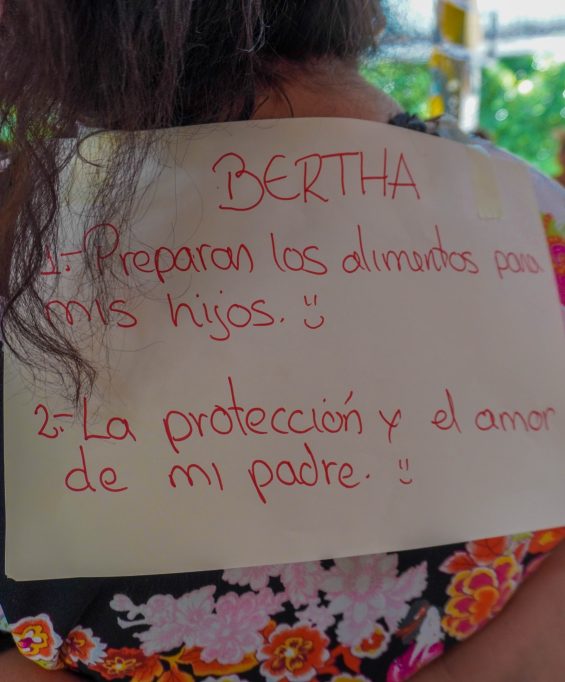 BERTHA
1.- Preparan los alimentos para
mis hijos. :)
2.- La protección y el amor
de mi padre. :)